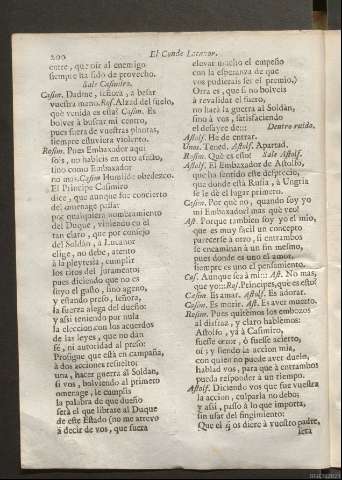 200
El Conde Lucanor.
entre, que oir al enemigo
siempre ha sido de provecho.
Sale Casimiro.
Casim. Dadme, señora, a besar
vuestra mano. Ros. Alzad del suelo,
què venida es esta? Casim. Es
bolver à buscar mi centro,
pues fuera de vuestras plantas,
siempre estuviera violento.
Rosim. Pues Embaxador aqui
sois, no habieis en otro
sino como Embaxador
no mas. Casim. Humilde obedezco.
El Principe Casimiro
dice, que aunque fue concierto
del omenage passar
por qualquiera nombramiento
del Duque, viniendo en èl
tan claro, que por consejo
del Soldan, à Lucanor
elige, no debe, atento
à la pleytesia, cumplir
los ritos del juramento;
pues diciendo que no es
suyo el gusto, sino ageno,
y estando preso, señora,
la fuerza alega del dueño:
y assi teniendo por nula
la eleccion con los acuerdos
de las leyes, que no dan
fè, ni autoridad al preso:
Prosigue que està en campaña,
à dos acciones resuelto:
una, hacer guerra al Soldan,
si vos, bolviendo al primero
omenage, le cumplis
la palabra de que dueño
serà el que librase al Duque
de este Estado (no me atrevo
à decir de vos, que fuera
elevar mucho el empeño
con la esperanza de que
vos pudierais ser el premio.)
Otra es, que si no bolveis
à revalidar el fuero,
no harà la guerra al Soldan,
sino à vos, satisfaciendo
el desayre de::: Dentro ruido.
Astolf. He de entrar.
Unos. Tened. Astolf. Apartad.
Rosim. Què es esto? Sale Astolf.
Astolf. El Embaxador de Astolfo,
que ha sentido este desprecio,
que donde està Rusia, à Ungria
se le dè el lugar primero.
Casim. Por què no, quando soy yo
mi Embaxador? mas què veo!
Ast. Porque tambien soy yo el mio,
que es muy facil un concepto
parecerse à otro, si entrambos
se encaminan à un fin mesmo,
pues donde es uno el amor,
siempre es uno el pensamiento.
Cas. Aunque sea à mi::: Ast. No mas,
que yo::: Ros. Principes, que es esto?
Casim. Es amar. Astolf. Es adorar.
Casim. Es morir. Ast. Es aver muerto.
Rosim. Pues quitèmos los embozos
al disfraz, y claro hablèmos:
Astolfo, yà à Casimiro,
fuesse error, ò fuesse acierto,
oì; y siendo la accion mia,
con quien no puede aver duelo,
hablad vos, para que à entrambos
pueda responder à un tiempo.
Astolf. Diciendo vos que fue vuestra
la accion, culparla no debo;
y assi, passo à lo que importa,
sin usar del fingimiento:
Que el q̃ os diere à vuestro padre,
serà